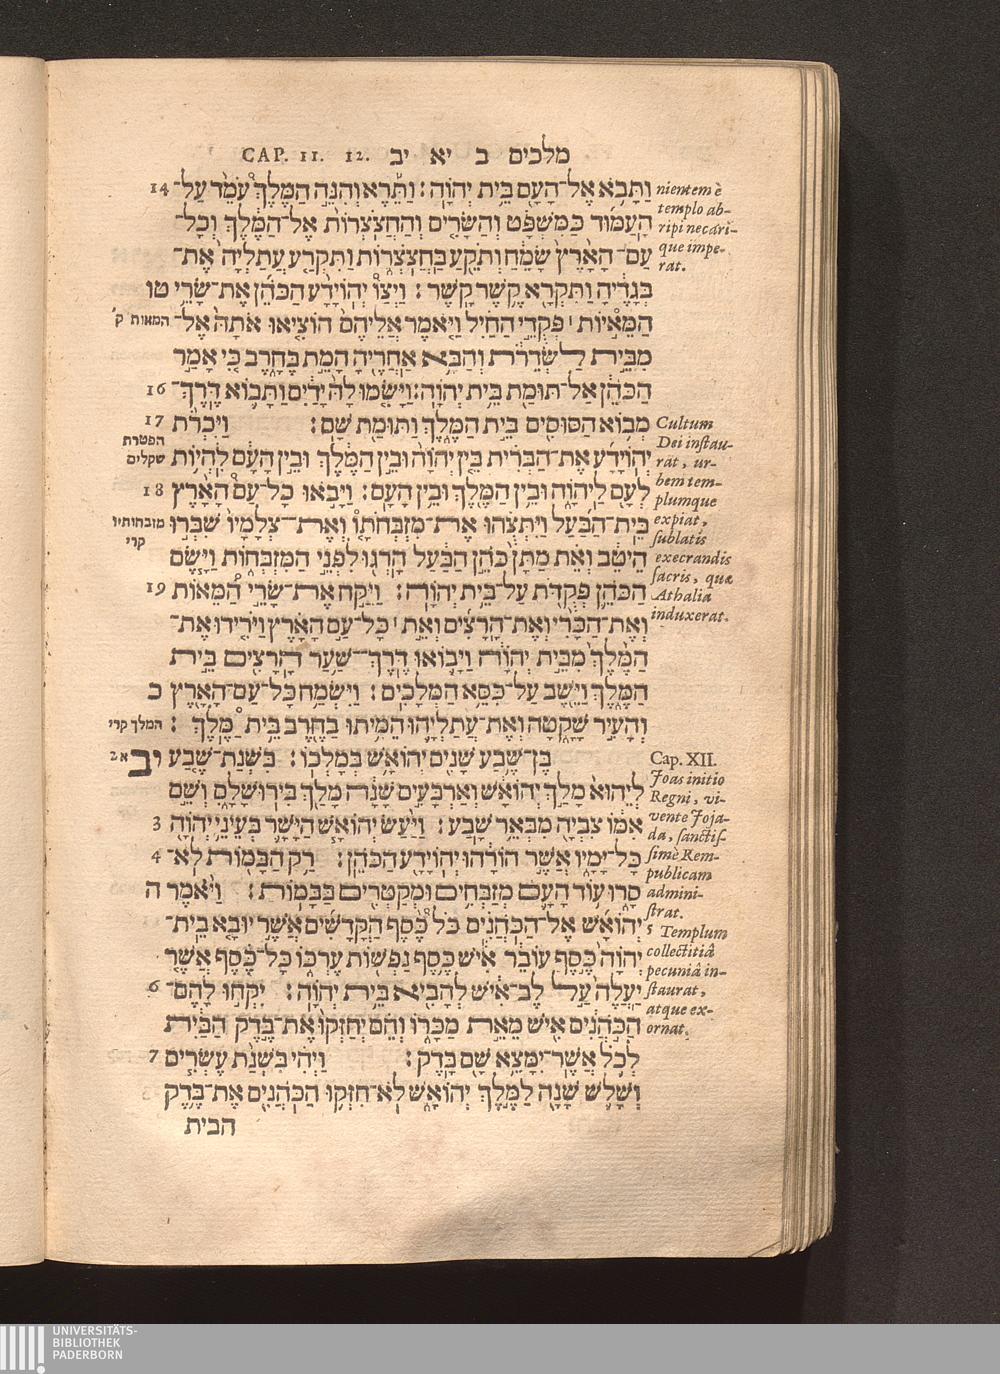 מלכים ב יא יב CAP. 11. 12.
וַתָּבֹא אֶל־הָעָם בֵּית יְהוָה׃ וַתֵּרֶא וְהִנֵּה הַמֶּלֶךְ עֹמֵד עַל־ 14
הָעַמּוּד כַּמִּשְׁפָּט וְהַשָּׂרִים וְהַחֲצֹצְרוֹת אֶל־הַמֶּלֶךְ וְכָל־
עַם־הָאָרֶץ שָׂמֵחַ וְתֹקֵעַ בַּחֲצֹצְרוֹת וַתִּקְרַע עֲתַלְיָה אֶת־
בְּגָדֶיהָ וַתִּקְרָא קֶשֶׁר קָשֶׁר׃ וַיְצַו יְהוֹיָדָע הַכֹּהֵן אֶת־שָׂרֵי טו
הַמֵּאיוֹת ׀ פְּקֻדֵי הַחַיִל וַיֹּאמֶר אֲלֵיהֶם הוֹצִיאוּ אֹתָהּ אֶל־ המאות ק׳
מִבֵּית לַשְּׂדֵרֹת וְהַבָּא אַחֲרֶיהָ הָמֵת בֶּחָרֶב כִּי אָמַר
הַכֹּהֵן אַל־תּוּמַת בֵּית יְהוָה׃ וַיָּשִׂמוּ לָהּ יָדַיִם וַתָּבוֹא דֶּרֶךְ־ 16
מְבוֹא הַסּוּסִים בֵּית הַמֶּלֶךְ וַתּוּמַת שָׁם׃ וַיִּכְרֹת 17
יְהוֹיָדָע אֶת־הַבְּרִית בֵּין יְהוָה וּבֵין הַמֶּלֶךְ וּבֵין הָעָם לִהְיוֹת
הפטרת
שקלים
לְעָם לַיהוָה וּבֵין הַמֶּלֶךְ וּבֵין הָעָם׃ וַיָּבֹאוּ כָל־עַם הָאָרֶץ 18
בֵּית־הַבַּעַל וַיִּתְּצֻהוּ אֶת־מִזְבְּחֹתָו וְאֶת־צְלָמָיו שִׁבְּרוּ
מזבחותיו
קרי
הֵיטֵב וְאֵת מַתָּן כֹּהֵן הַבַּעַל הָרְגוּ לִפְנֵי הַמִּזְבְּחוֹת וַיָּשֶׂם
הַכֹּהֵן פְּקֻדֹּת עַל־בֵּית יְהוָה׃ וַיִּקַּח אֶת־שָׂרֵי הַמֵּאוֹת 19
וְאֶת־הַכָּרִי וְאֶת־הָרָצִים וְאֵת ׀ כָּל־עַם הָאָרֶץ וַיֹּרִידוּ אֶת־
הַמֶּלֶךְ מִבֵּית יְהוָה וַיָּבוֹאוּ דֶּרֶךְ־שַׁעַר הָרָצִים בֵּית
הַמֶּלֶךְ וַיֵּשֶׁב עַל־כִּסֵּא הַמְּלָכִים׃ וַיִּשְׂמַח כָּל־עַם־הָאָרֶץ כ
וְהָעִיר שָׁקָטָה וְאֶת־עֲתַלְיָהוּ הֵמִיתוּ בַחֶרֶב בֵּית מֶּלֶךְ׃ המלך קרי
בֶּן־שֶׁבַע שָׁנִים יְהוֹאָשׁ בְּמָלְכוֹ׃ בִּשְׁנַת־שֶׁבַע יב א2
לְיֵהוּא מָלַךְ יְהוֹאָשׁ וְאַרְבָּעִים שָׁנָה מָלַךְ בִּירוּשָׁלָםִ וְשֵׁם
אִמּוֹ צִבְיָה מִבְּאֵר שָׁבַע׃ וַיַּעַשׂ יְהוֹאָשׁ הַיָּשָׁר בְּעֵינֵי יְהוָה 3
כָּל־יָמָיו אֲשֶׁר הוֹרָהוּ יְהוֹיָדָע הַכֹּהֵן׃ רַק הַבָּמוֹת לֹא־ 4
סָרוּ עוֹד הָעָם מְזַבְּחִים וּמְקַטְּרִים בַּבָּמוֹת׃ וַיֹּאמֶר ה
יְהוֹאָשׁ אֶל־הַכֹּהֲנִים כֹּל כֶּסֶף הַקֳּדָשִׁים אֲשֶׁר יוּבָא בֵית־
יְהוָה כֶּסֶף עוֹבֵר אִישׁ כֶּסֶף נַפְשׁוֹת עֶרְכּוֹ כָּל־כֶּסֶף אֲשֶׁר
יַעֲלֶה עַל לֶב־אִישׁ לְהָבִיא בֵּית יְהוָה׃ יִקְחוּ לָהֶם־ 6
הַכֹּהֲנִים אִישׁ מֵאֵת מַכָּרוֹ וְהֵם יְחַזְּקוּ אֶת־בֶּדֶק הַבַּיִת
לְכֹל אֲשֶׁר־יִמָּצֵא שָׁם בָּדֶק׃ וַיְהִי בִּשְׁנַת עֶשְׂרִים 7
וְשָׁלֹשׁ שָׁנָה לַמֶּלֶךְ יְהוֹאָשׁ לֹא־חִזְּקוּ הַכֹּהֲנִים אֶת־בֶּדֶק
הבית
nientem è
templo ab-
ripi necari-
que impe-
rat.
Cultum
Dei instau-
rat, ur-
bem tem-
plumque
expiat,
sublatis
execrandis
sacris, quæ
Athalia
induxerat.
Cap. XII.
Joas initio
Regni, vi-
vente Joja-
da, sanctis-
simè Rem-
publicam
admini-
strat.
5 Templum
collectitiâ
pecuniâ in-
staurat,
atque ex-
ornat.
UNIVERSITÄTS-
BIBLIOTHEK
PADERBORN